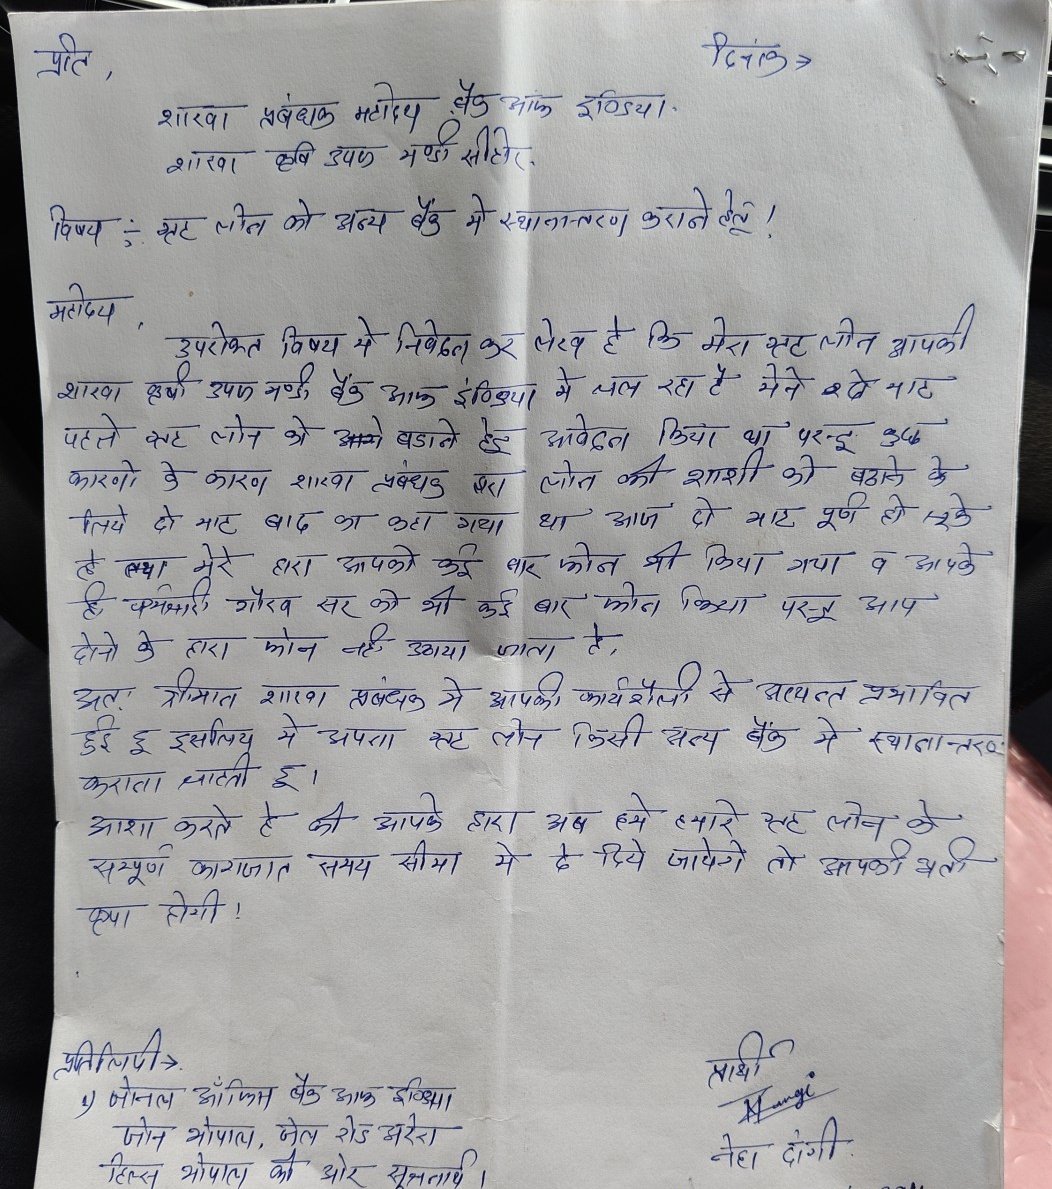 प्रति,
दिनांक →
शाखा प्रबंधक महोदय बैंक आफ इण्डिया.
शाखा कृषि उपज मण्डी सीहोर.
विषय ÷ गृह लोन को अन्य बैंक मे स्थानान्तरण कराने हेतू !
महोदय,
उपरोक्त विषय मे निवेदन कर लेख है कि मेरा गृह लोन आपकी
शाखा कृषी उपज मण्डी बैंक आफ इंण्डिया मे चल रहा है मेने माह
पहले गृह लोन को बडाने हेतु आवेदन किया था परन्तु कुछ
कारणो के कारण शाखा प्रबंधक द्वारा लोन की राशी को बढाने के
लिये दो माह बाद का कहा गया था आज दो माह पूर्ण हो चुके
है तथा मेरे द्वारा आपको कई बार फोन भी किया गया व आपके
ही कर्मचारी गौरव सर को भी कई बार फोन किया परन्तु आप
दोनो के द्वारा फोन नही उठाया जाता है,
अतः श्रीमान शाखा प्रबंधक मे आपकी कार्यशैली से अत्यन्त प्रभावित
हुई हू इसलिय मे अपना गृह लोन किसी अन्य बैंक मे स्थानान्तरण
कराना चाहती हू।
आशा करते है की आपके द्वारा अब हमे हमारे गृह लोन के
सम्पूर्ण कागजात समय सीमा मे दे दिये जायेगे तो आपकी अती
कृपा होगी !
प्रतिलिपी →
1) जोनल ऑफिस बैंक आफ इण्डिया
जोन भोपाल, जेल रोड अरेरा
हिल्स भोपाल की ओर सूचनार्थ।
प्रार्थी
नेहा दांगी